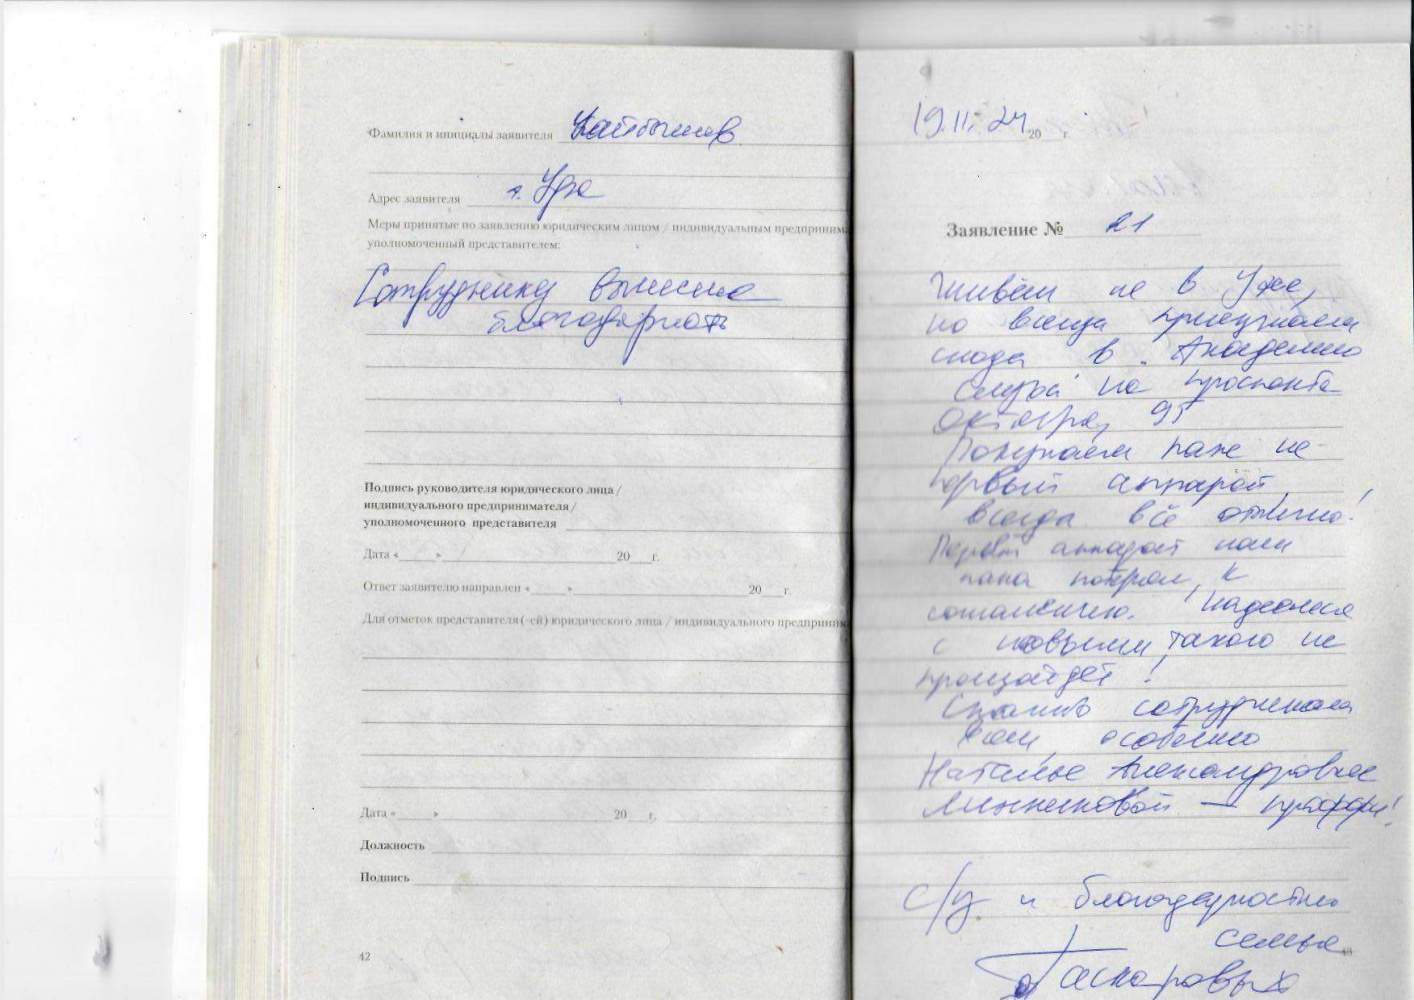 Фамилия и инициалы заявителя
Адрес заявителя г. Уфа
Меры принятые по заявлению юридическим лицом / индивидуальным предпринима
уполномоченный представителем:
Сотруднику вынесена
благодарность
Подпись руководителя юридического лица /
индивидуального предпринимателя /
уполномоченного представителя
Дата « » 20 г.
Ответ заявителю направлен « » 20 г.
Для отметок представителя (-ей) юридического лица / индивидуального предприним
Дата « » 20 г.
Должность
Подпись
42
19.11.24 20 г.
Заявление № 21
Живём не в Уфе,
но всегда приезжаем
сюда в Академию
Слуха на проспекте
Октября, 95
Покупаем папе не
первый аппарат,
всегда всё отлично!
Первый аппарат наш
папа потерял, к
сожалению. Надеемся
с новыми такого не
произойдёт!
Спасибо сотрудникам
особенно
Наталье Александровне
с/у и благодарностью
семья